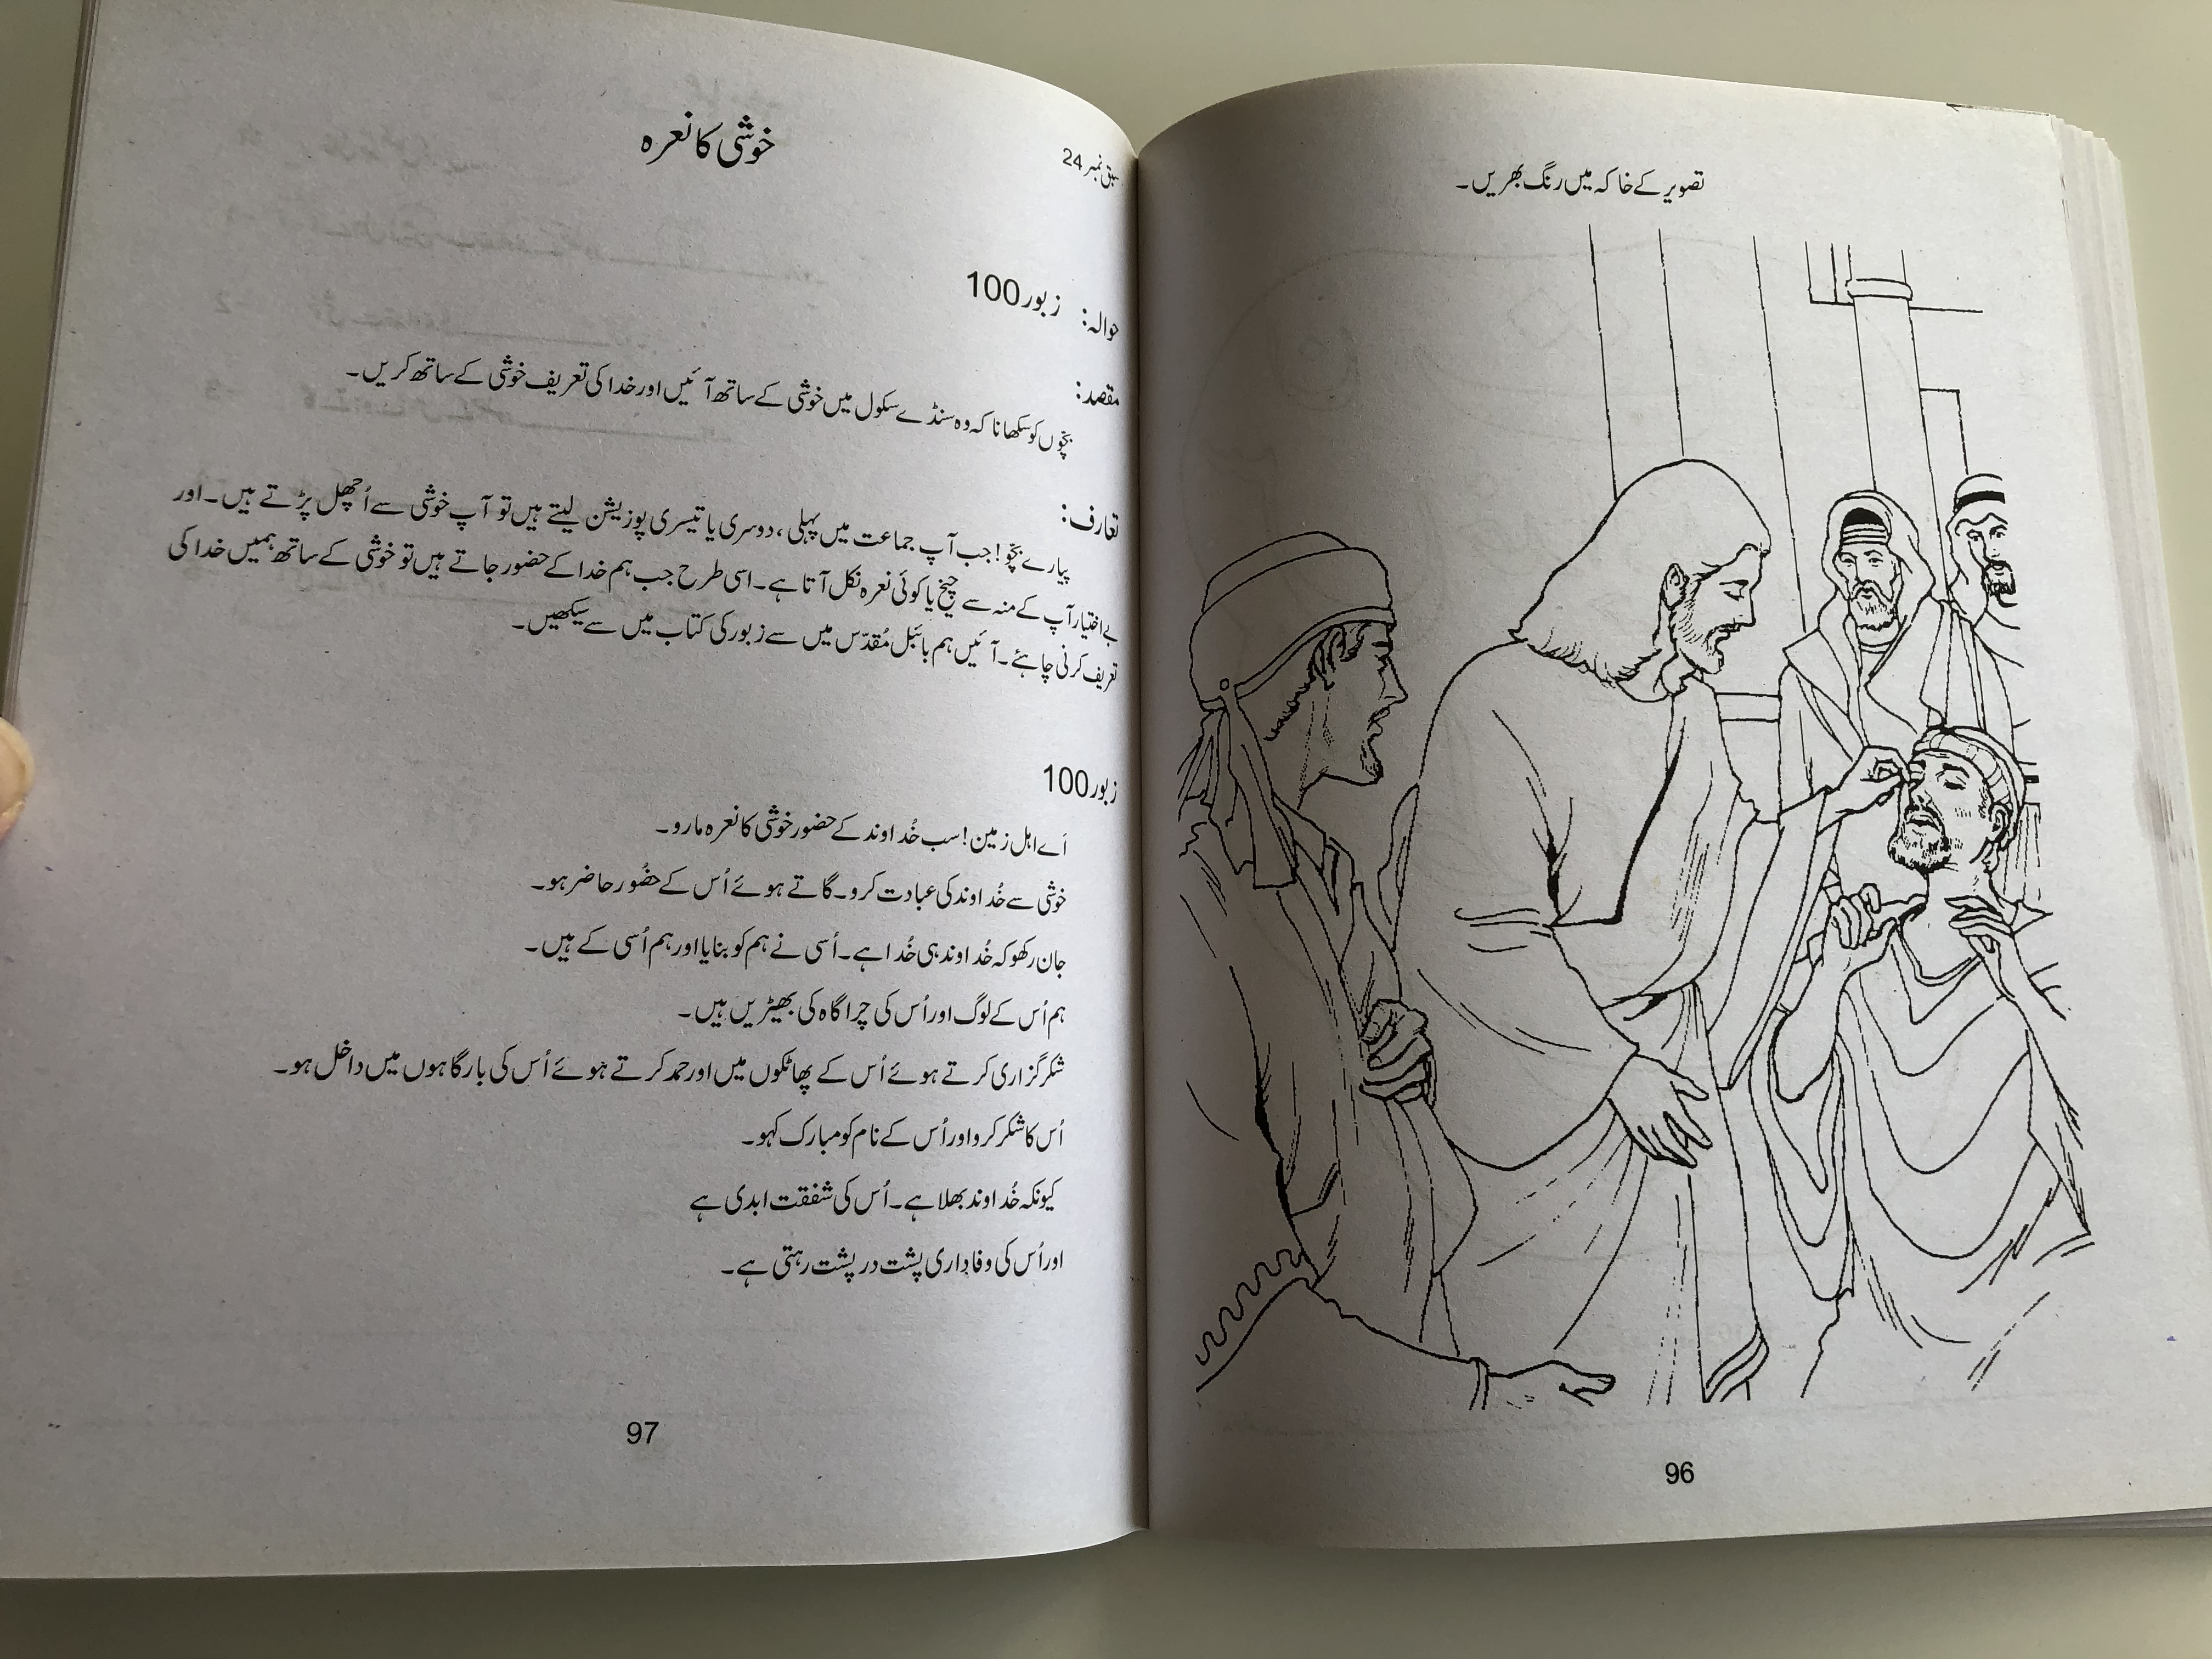 تصویر کے خاکہ میں رنگ بھریں۔
96
سبق نمبر 24
خوشی کا نعرہ
حوالہ: زبور 100
مقصد:
بچّوں کو سکھانا کہ وہ سنڈے سکول میں خوشی کے ساتھ آئیں اور خدا کی تعریف خوشی کے ساتھ کریں۔
تعارف:
پیارے بچّو! جب آپ جماعت میں پہلی، دوسری یا تیسری پوزیشن لیتے ہیں تو آپ خوشی سے اُچھل پڑتے ہیں۔ اور
بے اختیار آپ کے منہ سے چیخ یا کوئی نعرہ نکل آتا ہے۔ اسی طرح جب ہم خدا کے حضور جاتے ہیں تو خوشی کے ساتھ ہمیں خدا کی
تعریف کرنی چاہئے۔ آئیں ہم بائبل مُقدّس میں سے زبور کی کتاب میں سے سیکھیں۔
زبور 100
اَے اہل زمین! سب خُداوند کے حضور خوشی کا نعرہ مارو۔
خوشی سے خُداوند کی عبادت کرو۔ گاتے ہوئے اُس کے حضُور حاضر ہو۔
جان رکھو کہ خُداوند ہی خُدا ہے۔ اُسی نے ہم کو بنایا اور ہم اُسی کے ہیں۔
ہم اُس کے لوگ اور اُس کی چراگاہ کی بھیڑیں ہیں۔
شکر گزاری کرتے ہوئے اُس کے پھاٹکوں میں اور حمد کرتے ہوئے اُس کی بارگاہوں میں داخل ہو۔
اُس کا شکر کرو اور اُس کے نام کو مبارک کہو۔
کیونکہ خُداوند بھلا ہے۔ اُس کی شفقت ابدی ہے
اور اُس کی وفاداری پشت در پشت رہتی ہے۔
97